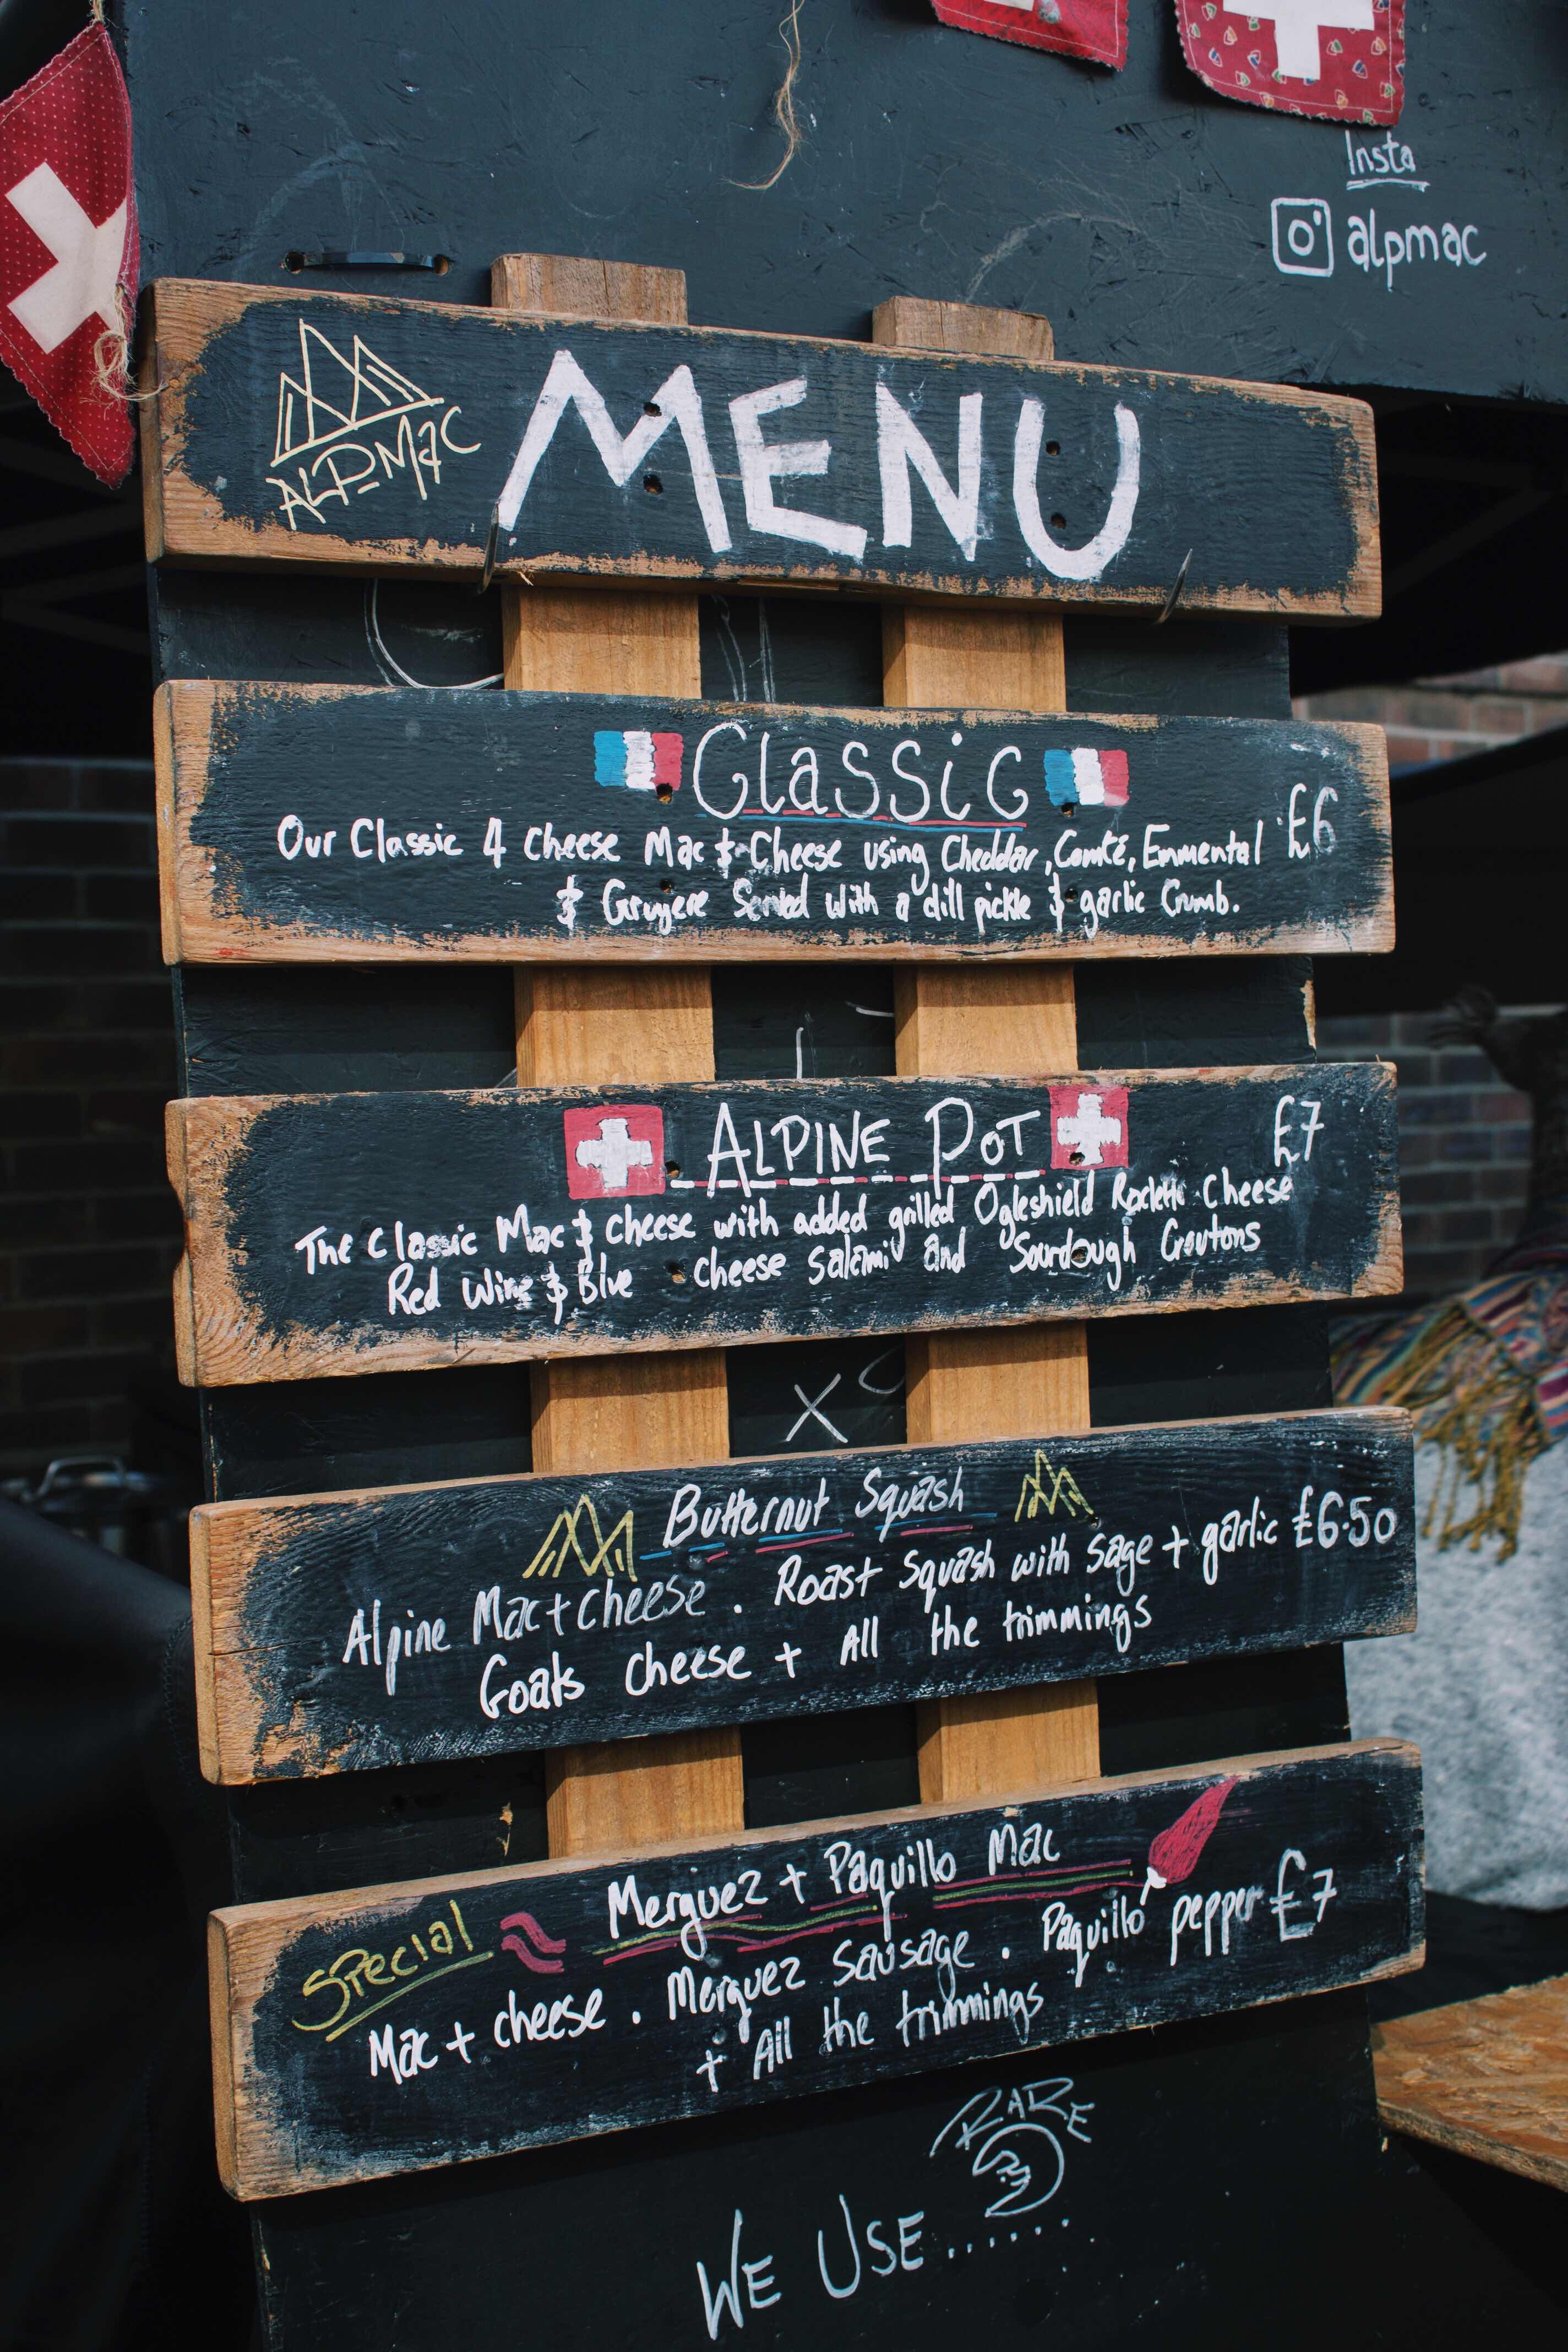 Insta
alpmac
ALPMAC
MENU
Classic
Our Classic 4 Cheese Mac & Cheese using Cheddar, Comté, Emmental £6
& Gruyere Served with a dill pickle & garlic Crumb.
ALPINE POT £7
The Classic Mac & cheese with added grilled Ogleshield Raclette Cheese
Red Wine & Blue cheese Salami and Sourdough Croutons
Butternut Squash
Alpine Mac + cheese . Roast Squash with sage + garlic £6.50
Goats cheese + All the trimmings
Special Merguez + Paquillo Mac
Mac + cheese . Merguez Sausage . Paquillo pepper £7
+ All the trimmings
RARE
WE USE.......